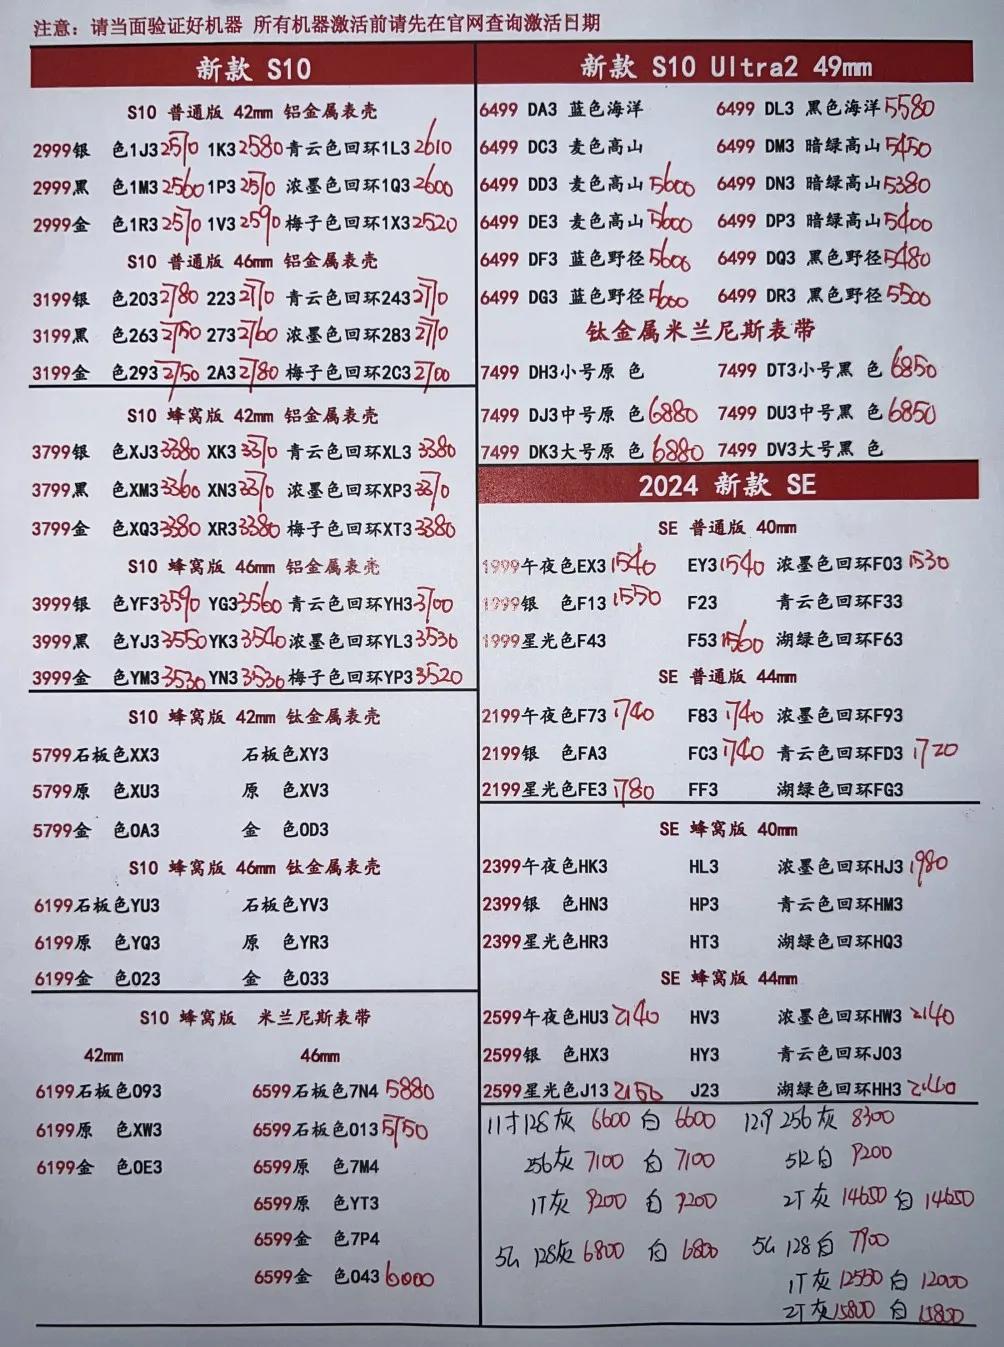 注意：请当面验证好机器 所有机器激活前请先在官网查询激活日期
新款 S10
S10 普通版 42mm 铝金属表壳
2999银 色1J3 2570 1K3 2580 青云色回环1L3 2610
2999黑 色1M3 2560 1P3 2570 浓墨色回环1Q3 2600
2999金 色1R3 2570 1V3 2590 梅子色回环1X3 2520
S10 普通版 46mm 铝金属表壳
3199银 色203 2780 223 2770 青云色回环243 2770
3199黑 色263 2750 273 2760 浓墨色回环283 2770
3199金 色293 2750 2A3 2780 梅子色回环2C3 2700
S10 蜂窝版 42mm 铝金属表壳
3799银 色XJ3 3380 XK3 3370 青云色回环XL3 3380
3799黑 色XM3 3360 XN3 3370 浓墨色回环XP3 3370
3799金 色XQ3 3380 XR3 3380 梅子色回环XT3 3380
S10 蜂窝版 46mm 铝金属表壳
3999银 色YF3 3590 YG3 3560 青云色回环YH3 3700
3999黑 色YJ3 3550 YK3 3540 浓墨色回环YL3 3530
3999金 色YM3 3530 YN3 3530 梅子色回环YP3 3520
S10 蜂窝版 42mm 钛金属表壳
5799石板色XX3 石板色XY3
5799原 色XU3 原 色XV3
5799金 色0A3 金 色0D3
S10 蜂窝版 46mm 钛金属表壳
6199石板色YU3 石板色YV3
6199原 色YQ3 原 色YR3
6199金 色023 金 色033
S10 蜂窝版 米兰尼斯表带
42mm 46mm
6199石板色093 6599石板色7N4 5880
6199原 色XW3 6599石板色013 5750
6199金 色0E3 6599原 色7M4
6599原 色YT3
6599金 色7P4
6599金 色043 6000
新款 S10 Ultra2 49mm
6499 DA3 蓝色海洋 6499 DL3 黑色海洋 5580
6499 DC3 麦色高山 6499 DM3 暗绿高山 5450
6499 DD3 麦色高山 5600 6499 DN3 暗绿高山 5380
6499 DE3 麦色高山 5600 6499 DP3 暗绿高山 5400
6499 DF3 蓝色野径 5600 6499 DQ3 黑色野径 5480
6499 DG3 蓝色野径 5600 6499 DR3 黑色野径 5500
钛金属米兰尼斯表带
7499 DH3小号原 色 7499 DT3小号黑 色 6850
7499 DJ3中号原 色 6880 7499 DU3中号黑 色 6850
7499 DK3大号原 色 6880 7499 DV3大号黑 色
2024 新款 SE
SE 普通版 40mm
1999午夜色EX3 1540 EY3 1540 浓墨色回环F03 1530
1999银 色F13 1550 F23 青云色回环F33
1999星光色F43 F53 1560 湖绿色回环F63
SE 普通版 44mm
2199午夜色F73 1740 F83 1740 浓墨色回环F93
2199银 色FA3 FC3 1740 青云色回环FD3 1720
2199星光色FE3 1780 FF3 湖绿色回环FG3
SE 蜂窝版 40mm
2399午夜色HK3 HL3 浓墨色回环HJ3 1980
2399银 色HN3 HP3 青云色回环HM3
2399星光色HR3 HT3 湖绿色回环HQ3
SE 蜂窝版 44mm
2599午夜色HU3 2140 HV3 浓墨色回环HW3 2140
2599银 色HX3 HY3 青云色回环J03
2599星光色J13 2150 J23 湖绿色回环HH3
11寸 128灰 6600 白 6600 256灰 8300
256灰 7100 白 7100 512白 9200
1T灰 9200 白 9200 2T灰 14650 白 14650
5G 128灰 6800 白 6800 5G 128白 7900
1T灰 12550 白 12000
2T灰 15800 白 15800